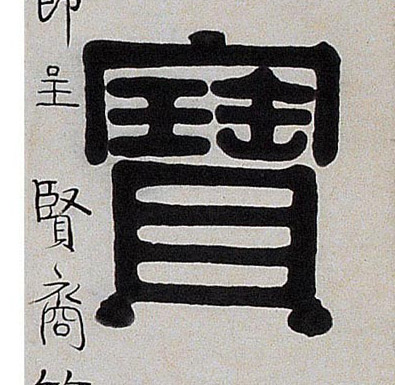 寶
師呈
賢裔